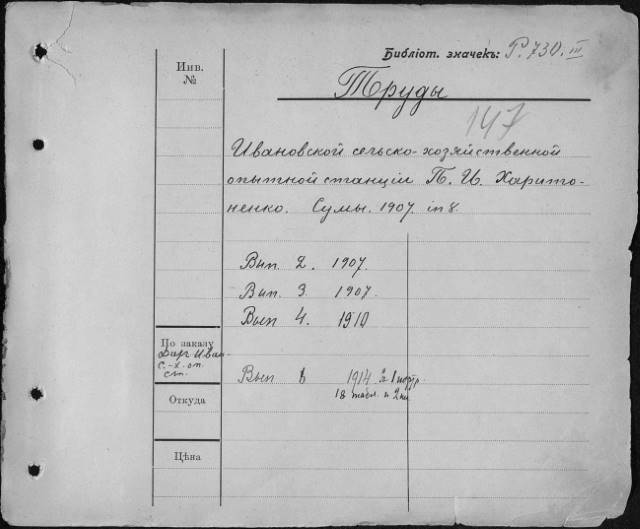 Библіот. значекъ: Р. 730. III
Инв.
№
Труды
147
Ивановской сельско-хозяйственной
опытной станціи П. И. Харито-
ненко. Сумы. 1907. in 8.
Вып. 2. 1907.
Вып. 3. 1907.
Вып 4. 1910
По заказу
Дар Иван-
с.-х. оп.
ст.
Вып 6 1914 1
18 табл.
Откуда
Цѣна